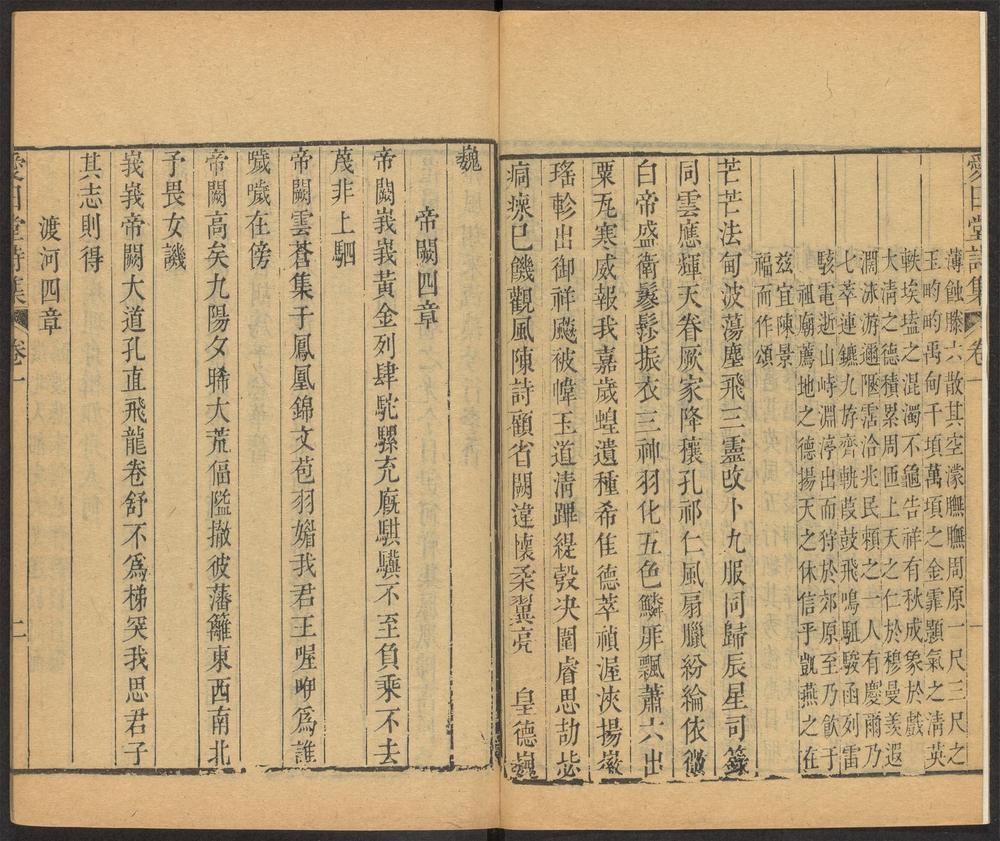 愛日堂詩集 卷一
薄蝕滕六散其空濛膴膴周原一尺三尺之
玉畇畇禹甸千項萬頃之金霏顥氣之淸英
軼埃壒之混濁不龜告祥有秋成象於戲
大淸之德積累周匝上天之仁於穆曼羨遐
濶沬游邇陿霑洽兆民賴之一人有慶雨乃
七萃連鑣九斿齊軌葭鼓飛鳴駔駿函列雷
駭電逝山峙淵渟出而狩於郊原至乃飮于
祖廟薦地之德揚天之休信乎凱燕之在
兹宜陳景
福而作頌
芒芒法甸波蕩塵飛三靈改卜九服同歸辰星司籙
同雲應輝天眷厥家降穰孔祁仁風扇臘紛綸依微
白帝盛衛鬖髿振衣三神羽化五色鱗厞飄蕭六出
粟旡寒威報我嘉歲蝗遺種希隹德萃禎渥浹揚徽
瑤軫出御祥飈被幃玉道淸蹕緹彀决圍睿思劼毖
痌瘝已饑觀風陳詩顧省闕違懷柔翼亮 皇德巍
巍
帝闕四章
帝闕峩峩黃金列肆駝騾充廐騏驥不至負乘不去
蔑非上駟
帝闕雲蒼集于鳳凰錦文苞羽媚我君王喔咿爲誰
噦噦在傍
帝闕高矣九陽夕晞大荒偪隘撤彼藩籬東西南北
予畏女譏
峩峩帝闕大道孔直飛龍卷舒不爲梯穾我思君子
其志則得
渡河四章
愛日堂詩集 卷一 二